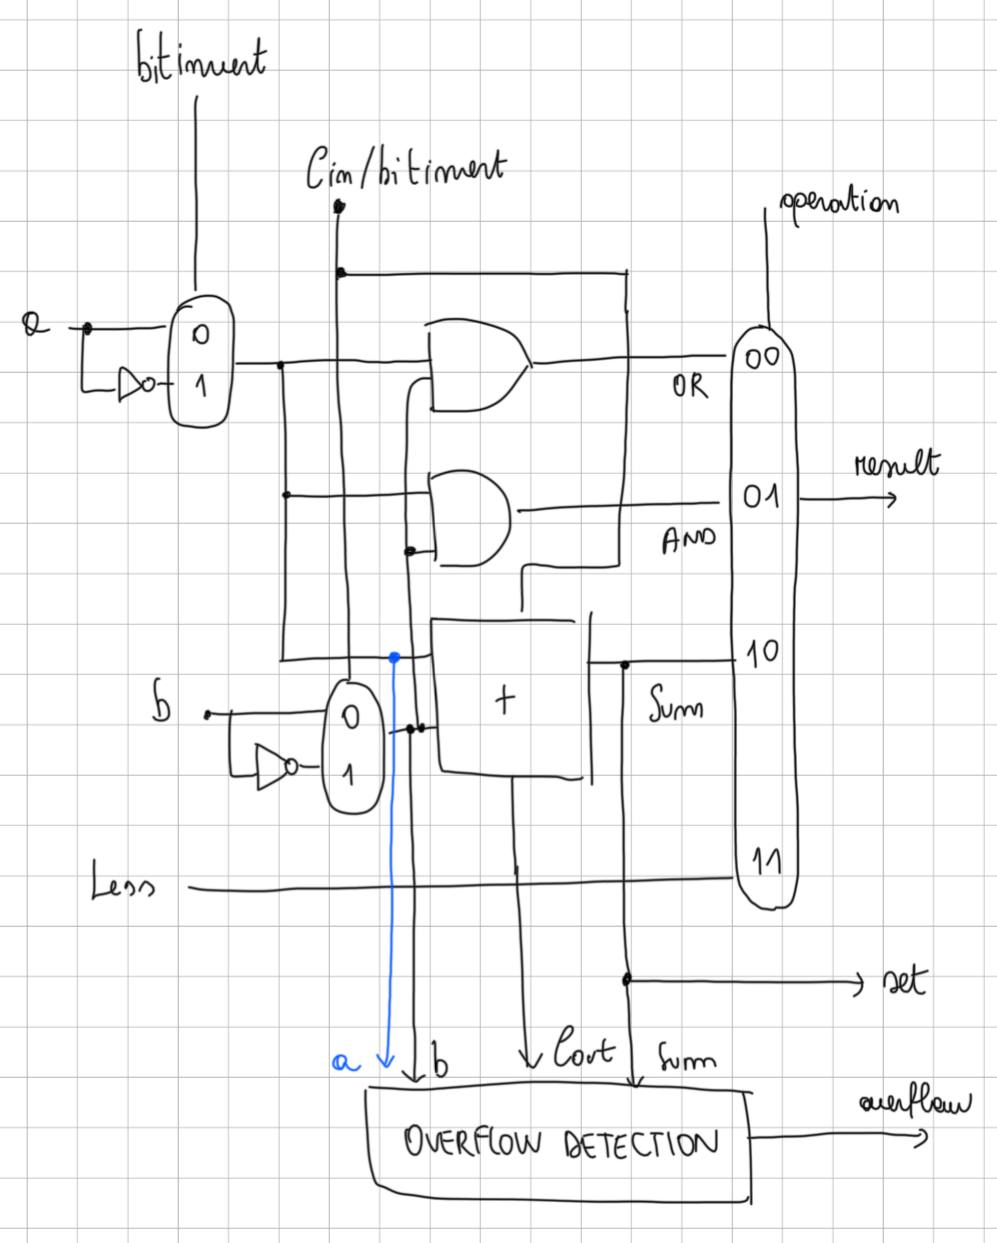 bitinvert
Cin/bitinvert
operation
a
0
1
00
OR
result
01
AND
10
+
Sum
b
0
1
11
Less
set
a
b
Cout
Sum
overflow
OVERFLOW DETECTION